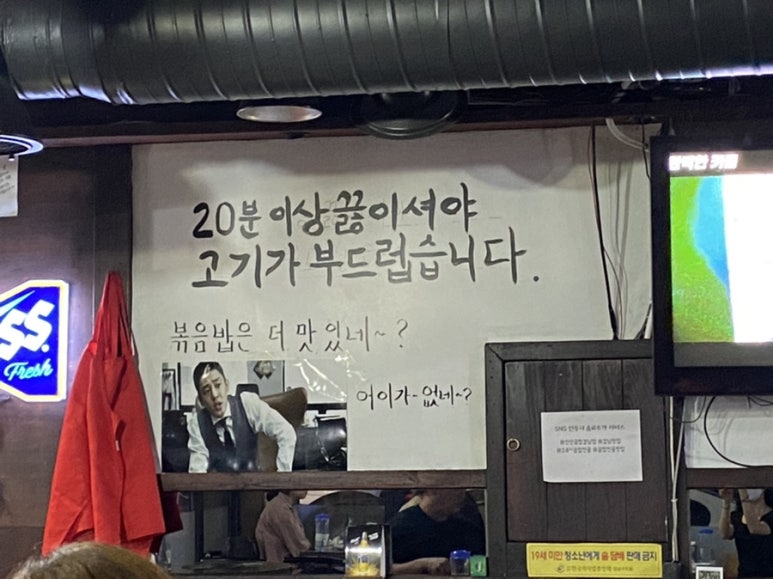 20분 이상 끓이셔야
고기가 부드럽습니다.
볶음밥은 더 맛있네~?
어이가~없네~?
SS
Fresh
SNS 인증시 음료수가 서비스
19세 미만 청소년에게 술 담배 판매 금지